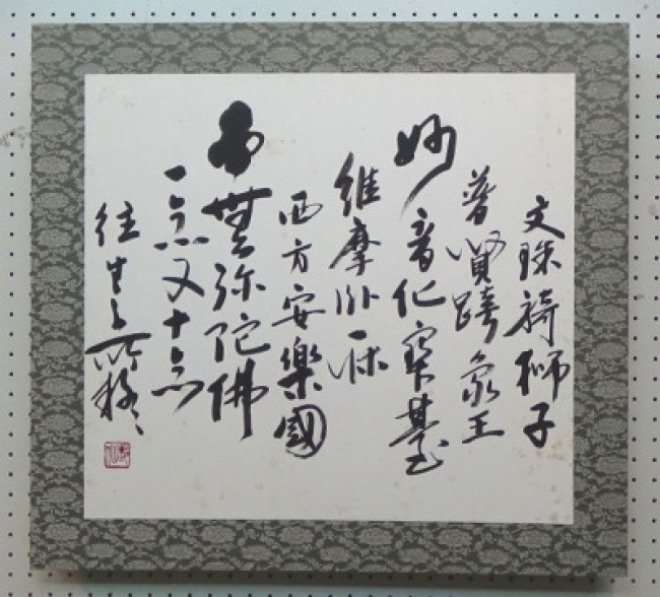 文殊騎獅子
普賢跨象王
妙音化寶臺
維摩卧一牀
西方安樂國
南無弥陀佛
一念又十念
往生